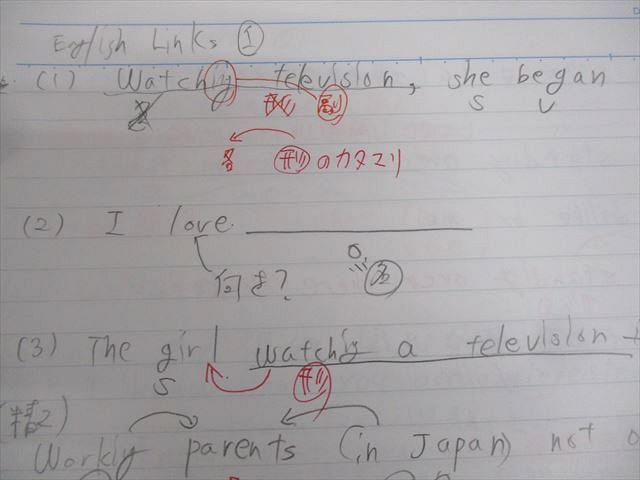 English Links ①
(1) Watching television, she began
S V
名 ← 形 のカタマリ
(2) I love
何を? O 名
(3) The girl watching a television
S 形
Working parents (in Japan) not